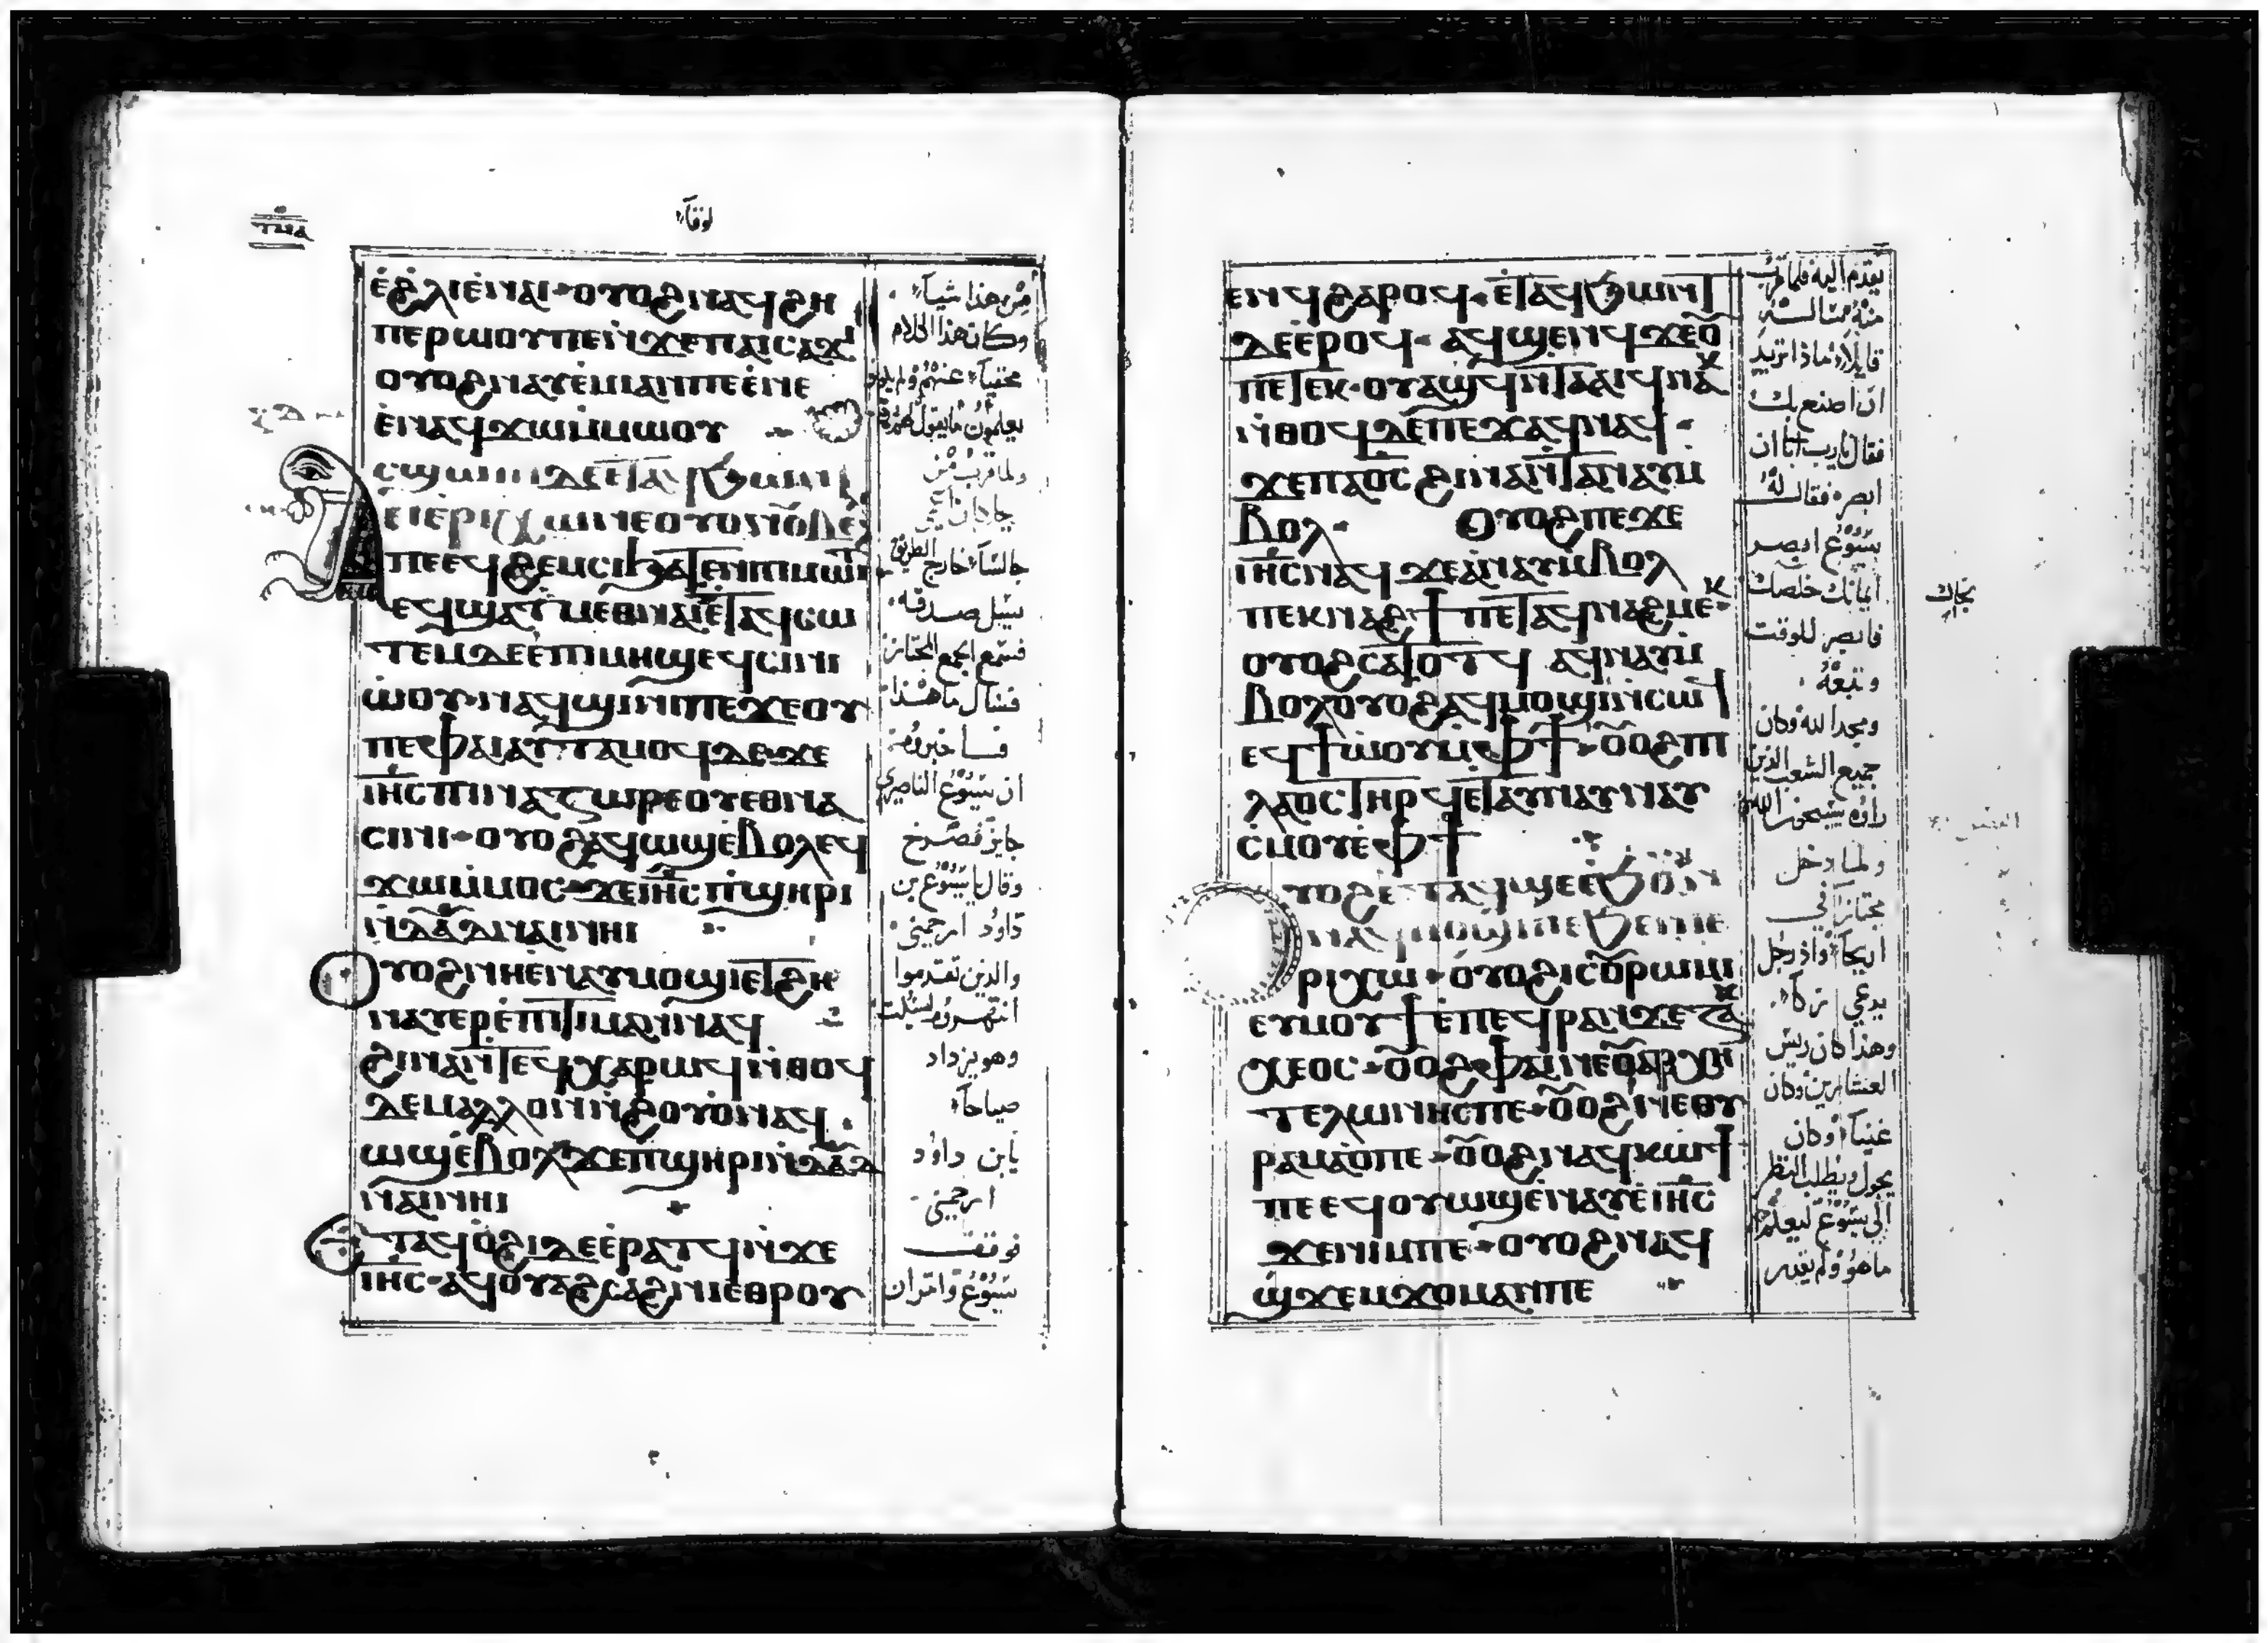 لوقا
ⲉ̀ϩⲗⲓⲉ̀ⲛⲁⲓ ⲟⲩⲟϩⲛⲁϥϩⲏ
ⲡⲉⲣϣⲟⲩⲡⲉⲛ̀ϫⲉⲡⲁⲓⲥⲁϫⲓ
ⲟⲩⲟϩⲛⲁⲩⲉ̀ⲙⲓⲁⲛⲡⲉⲉ̀ⲛⲉ
ⲉ̀ⲛⲁϥϫⲱⲙ̀ⲙⲱⲟⲩ
ⲥϣⲱⲡⲓⲇⲉⲉ̀ⲧⲁϥϧⲱⲛⲧ
ⲉ̀ⲓⲉⲣⲓⲭⲱⲛⲉⲟⲩⲟⲛⲟⲩⲃⲉⲗⲗⲉ
ⲡⲉⲉϥϩⲉⲙⲥⲓϧⲁⲧⲉⲛⲡⲓⲙⲱⲓⲧ
ⲉϥϣⲁⲧⲙⲉⲑⲛⲁⲓⲉ̀ⲧⲁϥⲥⲱ
ⲧⲉⲙⲇⲉⲉ̀ⲡⲓⲙⲏϣⲉϥⲥⲓⲛⲓ
ⲙ̀ⲙⲱⲟⲩⲛⲁϥϣⲓⲛⲓⲡⲉϫⲉⲟⲩ
ⲡⲉⲫⲁⲓⲁⲩⲧⲁⲙⲟϥⲇⲉϫⲉ
ⲓⲏⲥⲡⲓⲛⲁⲍⲱⲣⲉⲟⲥⲉⲑⲛⲁ
ⲥⲓⲛⲓ ⲟⲩⲟϩⲁϥⲱϣⲉ̀ⲃⲟⲗⲉϥ
ϫⲱⲙ̀ⲙⲟⲥ ϫⲉⲓⲏⲥⲡ̀ϣⲏⲣⲓ
ⲛ̀ⲇⲁⲇⲛⲁⲓⲛⲏⲓ
ⲟⲩⲟϩⲛⲏⲉ̀ⲛⲁⲩⲙⲟϣⲓⲉⲧϩⲏ
ⲛⲁⲩⲉⲣⲉ̀ⲡⲓⲧⲓⲙⲁⲛⲛⲁϥ
ϩⲓⲛⲁⲛ̀ⲧⲉϥⲭⲁⲣⲱϥⲛ̀ⲑⲟϥ
ⲇⲉⲙⲁⲗⲗⲟⲛⲛ̀ϩⲟⲩⲟ̀ⲛⲁϥ
ⲱϣⲉ̀ⲃⲟⲗϫⲉⲡϣⲏⲣⲓⲛ̀ⲇⲁⲇ
ⲛⲁⲓⲛⲏⲓ
ⲉⲧⲁϥⲟ̀ϩⲓⲇⲉⲉ̀ⲣⲁⲧϥⲛ̀ϫⲉ
ⲓⲏⲥ ⲁϥⲟⲩⲁϩⲥⲁϩⲛⲓⲉⲑⲣⲟⲩ
من هذا شيا
وكان هذا الكلام
يعلمون ما يقول لهم
ولما قرب من
جالسا خارج الطريق
يسل صدقه
فسمع الجمع المجتاز
فسال ما هذا
فاخبروه
ان يسوع الناصري
جايز فصرخ
وقال يا يسوع بن
داود ارحمني
والذين تقدموا
انتهروه ليسكت
وهو يزداد
صياحا
يابن داود
ارحمني
فوقف
يسوع وامر ان
ⲉⲛϥϩⲁⲣⲟϥ ⲉ̀ⲧⲁϥϧⲱⲛⲧ
ⲇⲉⲉ̀ⲣⲟϥ ⲁϥϣⲉⲛϥϫⲉⲟⲩ
ⲡⲉⲧⲉⲕⲟⲩⲁϣϥⲛ̀ⲧⲁⲁⲓϥⲛⲁⲕ
ⲛ̀ⲑⲟϥⲇⲉⲡⲉϫⲁϥⲛⲁϥ
ϫⲉⲡⲁⲟⲥϩⲓⲛⲁⲛ̀ⲧⲁⲛⲁⲩⲙ̀
ⲃⲟⲗ ⲟⲩⲟϩⲡⲉϫⲉ
ⲓⲏⲥⲛⲁϥϫⲉⲁⲛⲁⲩⲙ̀ⲃⲟⲗ
ⲡⲉⲕⲛⲁϩϯⲡⲉⲧⲁϥⲛⲁϩⲙⲉⲕ
ⲟⲩⲟϩⲥⲁⲧⲟⲧϥ ⲁϥⲛⲁⲩⲙ̀
ⲃⲟⲗⲟⲩⲟϩⲁϥⲙⲟϣⲓⲛ̀ⲥⲱϥ
ⲉϥϯⲱ̀ⲟⲩⲙ̀ⲫϯ ⲟⲩⲟϩⲡⲓ
ⲗⲁⲟⲥⲧⲏⲣϥⲉ̀ⲧⲁⲩⲛⲁⲩⲛⲁⲩ
ⲥ̀ⲙⲟⲩⲉ̀ⲫϯ
ⲟⲩⲟϩⲉ̀ⲧⲁϥϣⲉⲉ̀ϧⲟⲩⲛ
ⲛⲁϥⲙⲟϣⲓⲡⲉϧⲉⲛⲓⲉ
ⲣⲓⲭⲱ ⲟⲩⲟϩⲓⲥⲟⲩⲣⲱⲙⲓ
ⲉⲩⲙⲟⲩϯⲉ̀ⲡⲉϥⲣⲁⲛϫⲉⲍⲁⲕ
ⲭⲉⲟⲥ ⲟⲩⲟϩⲫⲁⲓⲛⲉⲟⲩⲁⲣⲭⲏ
ⲧⲉⲗⲱⲛⲏⲥⲡⲉ ⲟⲩⲟϩⲛⲉⲟⲩ
ⲣⲁⲙⲁⲟ̀ⲡⲉ ⲟⲩⲟϩⲛⲁϥⲕⲱϯ
ⲡⲉⲉϥⲟⲩⲱϣⲉ̀ⲛⲁⲩⲉ̀ⲓⲏⲥ
ϫⲉⲛⲓⲙⲡⲉ ⲟⲩⲟϩⲛⲁϥ
ϣ̀ϫⲉⲙϫⲟⲙⲁⲛⲡⲉ
يقدم اليه فلما قرب
منه ساله
قايلا ماذا تريد
ان اصنع بك
فقال يارب ان
ابصر فقال له
يسوع ابصر
ايمانك خلصك
نجاك
فابصر للوقت
وتبعه
ومجد الله وكان
جميع الشعب الذين
راوه يسبحون الله
ولما دخل
مجتازا في
اريحا واذ رجل
يدعي زكا
وهذا كان ريس
العشارين وكان
غنيا وكان
يجول ويطلب النظر
الي يسوع ليعلم
ما هو ولم يقدر